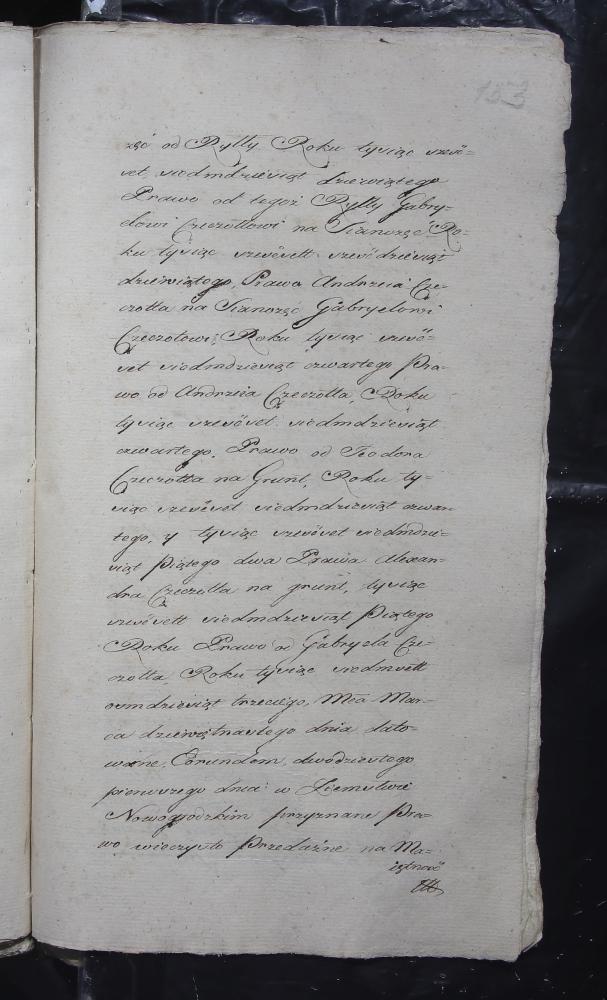 153
żąć od Rylły Roku tysiąc szeŚ=
set siedmdziesiąt dziewiątego
Prawo od tegoż Rylły Gabry-
elowi Czeczottowi na Sianożąć Ro-
ku tysiąc szeŚćsett szeŚćdziesiąt
dziewiątego, Prawo Andrzeia Cze-
czotta na Sianożąć Gabryelowi
Czeczotowi, Roku tysiąc szeŚć=
set siedmdziesiąt czwartego Pra-
wo od Andrzeia Czeczotta, Roku
tysiąc szeŚćset siedmdziesiąt
czwartego, Prawo od Teodora
Czeczotta na Grunt, Roku ty-
siąc szeŚćset siedmdziesiąt czwar-
tego, y tysiąc szeŚćset siedmdzie-
siąt Piątego dwa Prawa Alexan-
dra Czeczotta na grunt, tysiąc
szeŚćsett siedmdziesiąt Piątego
Roku Prawo od Gabryela Cze-
czotta Roku tysiąc siedmsett
osmdziesiąt trzeciego, Mca Mar-
ca dziewiętnastego dnia dato-
wane, Eorundem, dwódziestego
pierwszego dnia w Ziemstwie
Nowogrodzkim przyznane Pra-
wo wieczysto Przedażne na Ma-
iętność